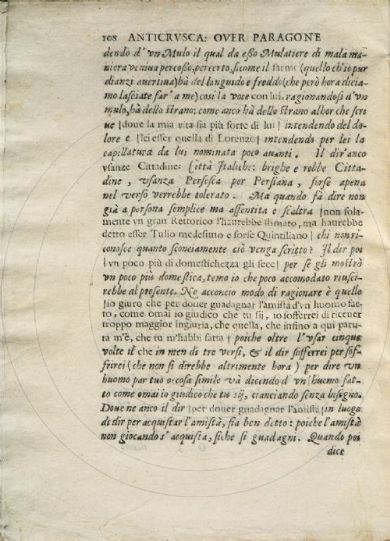 108 ANTICRVSCA: OVER PARAGONE
dendo d'vn Mulo il qual da esso Mulatiere di mala ma
niera veniua percosso, percerto, sicome il farmi (quello ch'io pur
dianzi auertiua) hà del languido e freddo (che però hora dicia
mo lasciate far' a me) così la voce con lui, ragionandosi d'vn
mulo, hà dello strano; come anco hà dello strano alhor che scri
ue |doue la mia vita sia più forte di lui| intendendo del do-
lore e |lei esser quella di Lorenzo| intendendi per lei la
capillatura da lui nominata poco auanti. Il dir'anco
vsanze Cittadine; Città Italiche; brighe e robbe Citta
dine, vsanza Persesca per Persiana, forse apena
nel verso verrebbe tolerato. Ma quando fà dire non
già a persona semplice ma assentita e scaltra |non sola-
mente vn gran Rettorico l'haurebbe stimato, ma haurebbe
detto esser Tulio medesimo e forse Quintiliano| chi nonri-
conosce quanto sconciamente ciò venga scritto? Il dir poi
|vn poco più di domestichezza gli fece| per se gli mostrò
vn poco più domestica, temo io che poco accomodato riusci-
rebbe al presente. Ne acconcio modo di ragionare è quello
|io giuro che per douer guadagnar l'amistà d'vn huomo fat-
to, come omai io giudico che tu sij, io sofferrei di riceuer
troppo maggior ingiuria, che quella, che infino a qui paru-
ta m'è, che tu m'habbi fatta| poiche oltre l'vsar cinque
volte il che in men di tre versi, & il dir sofferrei per sof-
frirei (che non si direbbe altrimente hora) per dire vn
huomo par tuo o cosa simile và dicendo d'vn' huomo fat-
to come omai io giudico che tu sij, cianciando senza bisogno.
Doue ne anco il dir |per douer guadagnar l'amistà| in luogo
di dir per acquistar l'amistà, sta ben detto: poiche l'amistà
non giocando s'acquista, siche si guadagni. Quando poi
dice